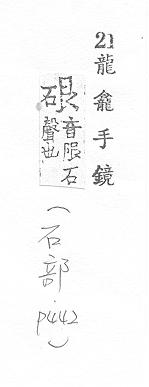 21龍龕手鏡
硍音眼石
聲也
(石部 p.442)